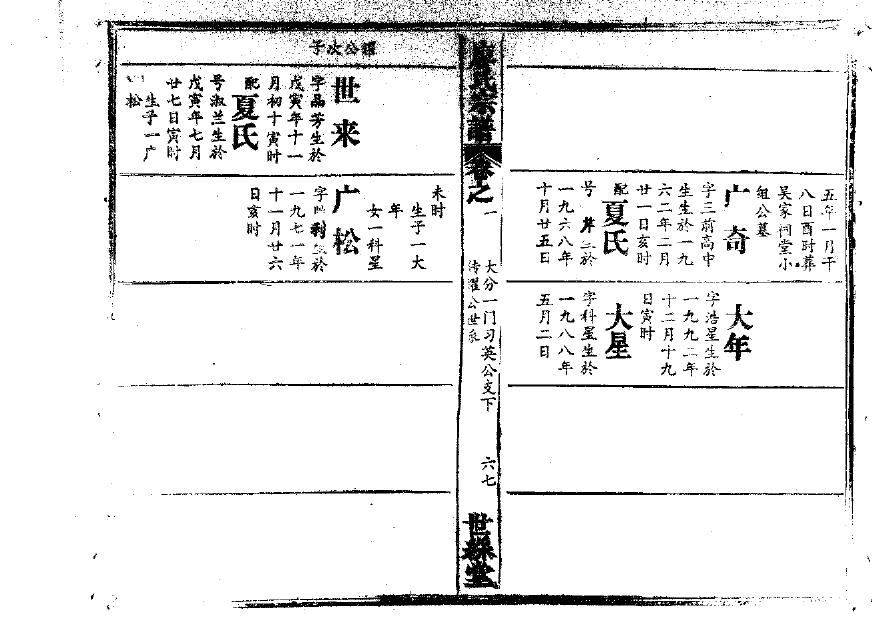 五年一月干
八日酉时葬
吴家祠堂小
组公墓
广奇
字三前高中
生生於一九
六二年二月
廿一日亥时
配
夏氏
号
於
一九六八年
十月廿五日
大年
字浩星生於
一九九二年
十二月十九
日寅时
大星
字科星生於
一九八八年
五月二日
氏宗譜
卷之一
大分一门习英公支下
传耀公世系
六七
世綵堂
耀公次子
世来
字晶芳生於
戊寅年十一
月初十寅时
配
夏氏
号淑兰生於
戊寅年七月
廿七日寅时
生子一广
松
未时
生子一大
年
女一科星
广松
字
利生於
一九七一年
十一月廿六
日亥时